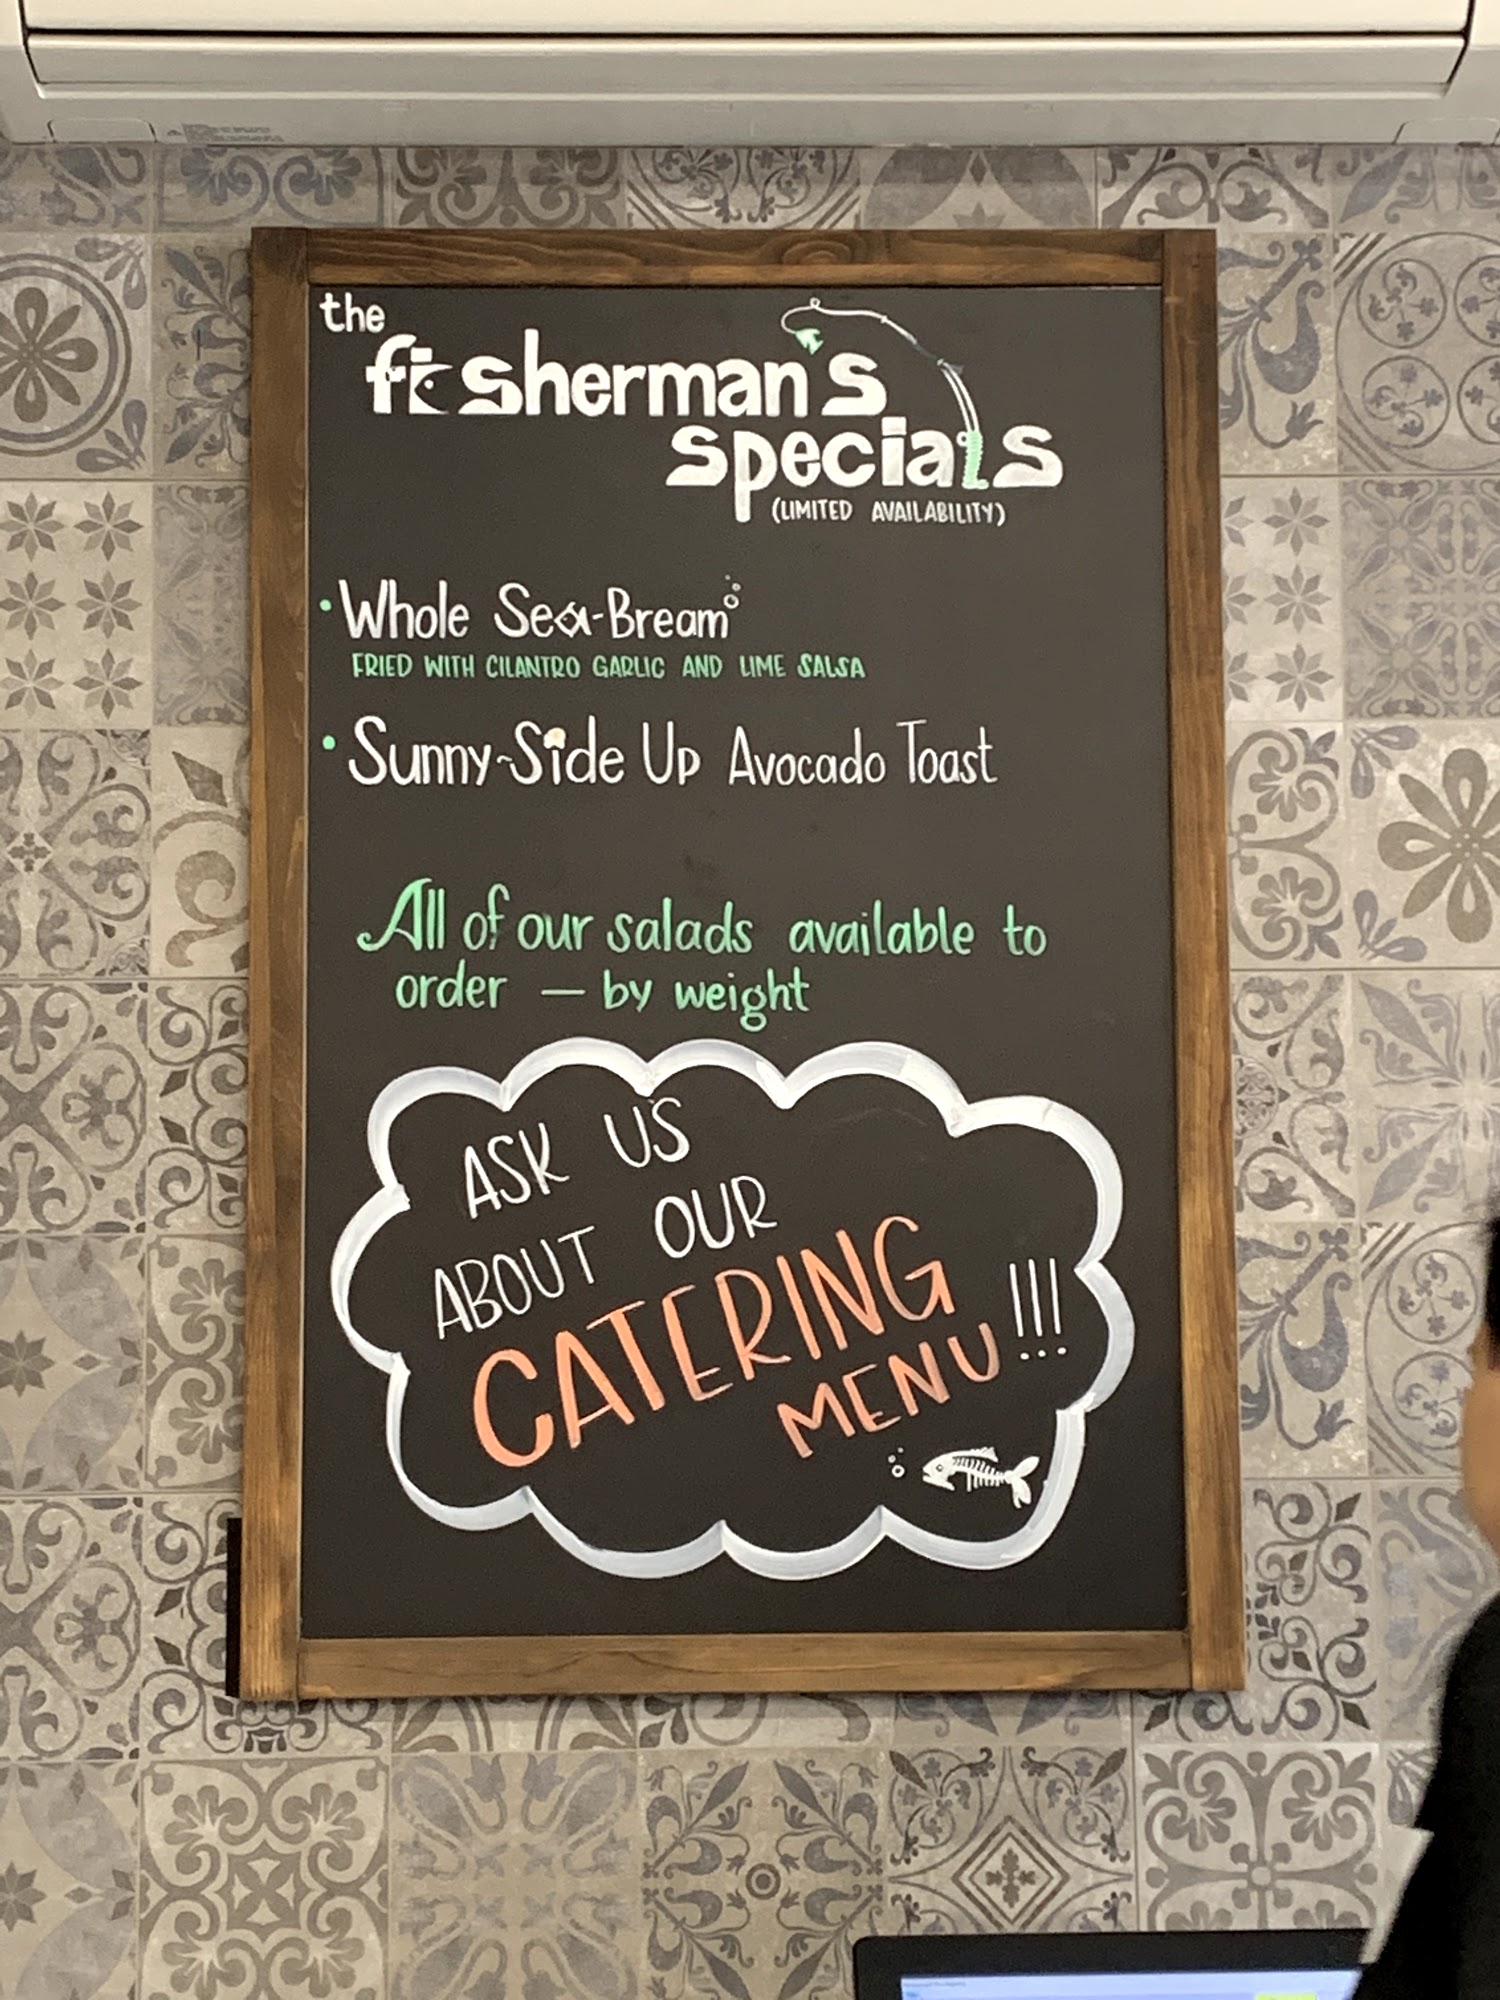 the
fisherman's
specials
(LIMITED AVAILABILITY)
• Whole Sea-Bream
FRIED WITH CILANTRO GARLIC AND LIME SALSA
• Sunny-Side Up Avocado Toast
All of our salads available to
order — by weight
ASK US
ABOUT OUR
CATERING
MENU!!!